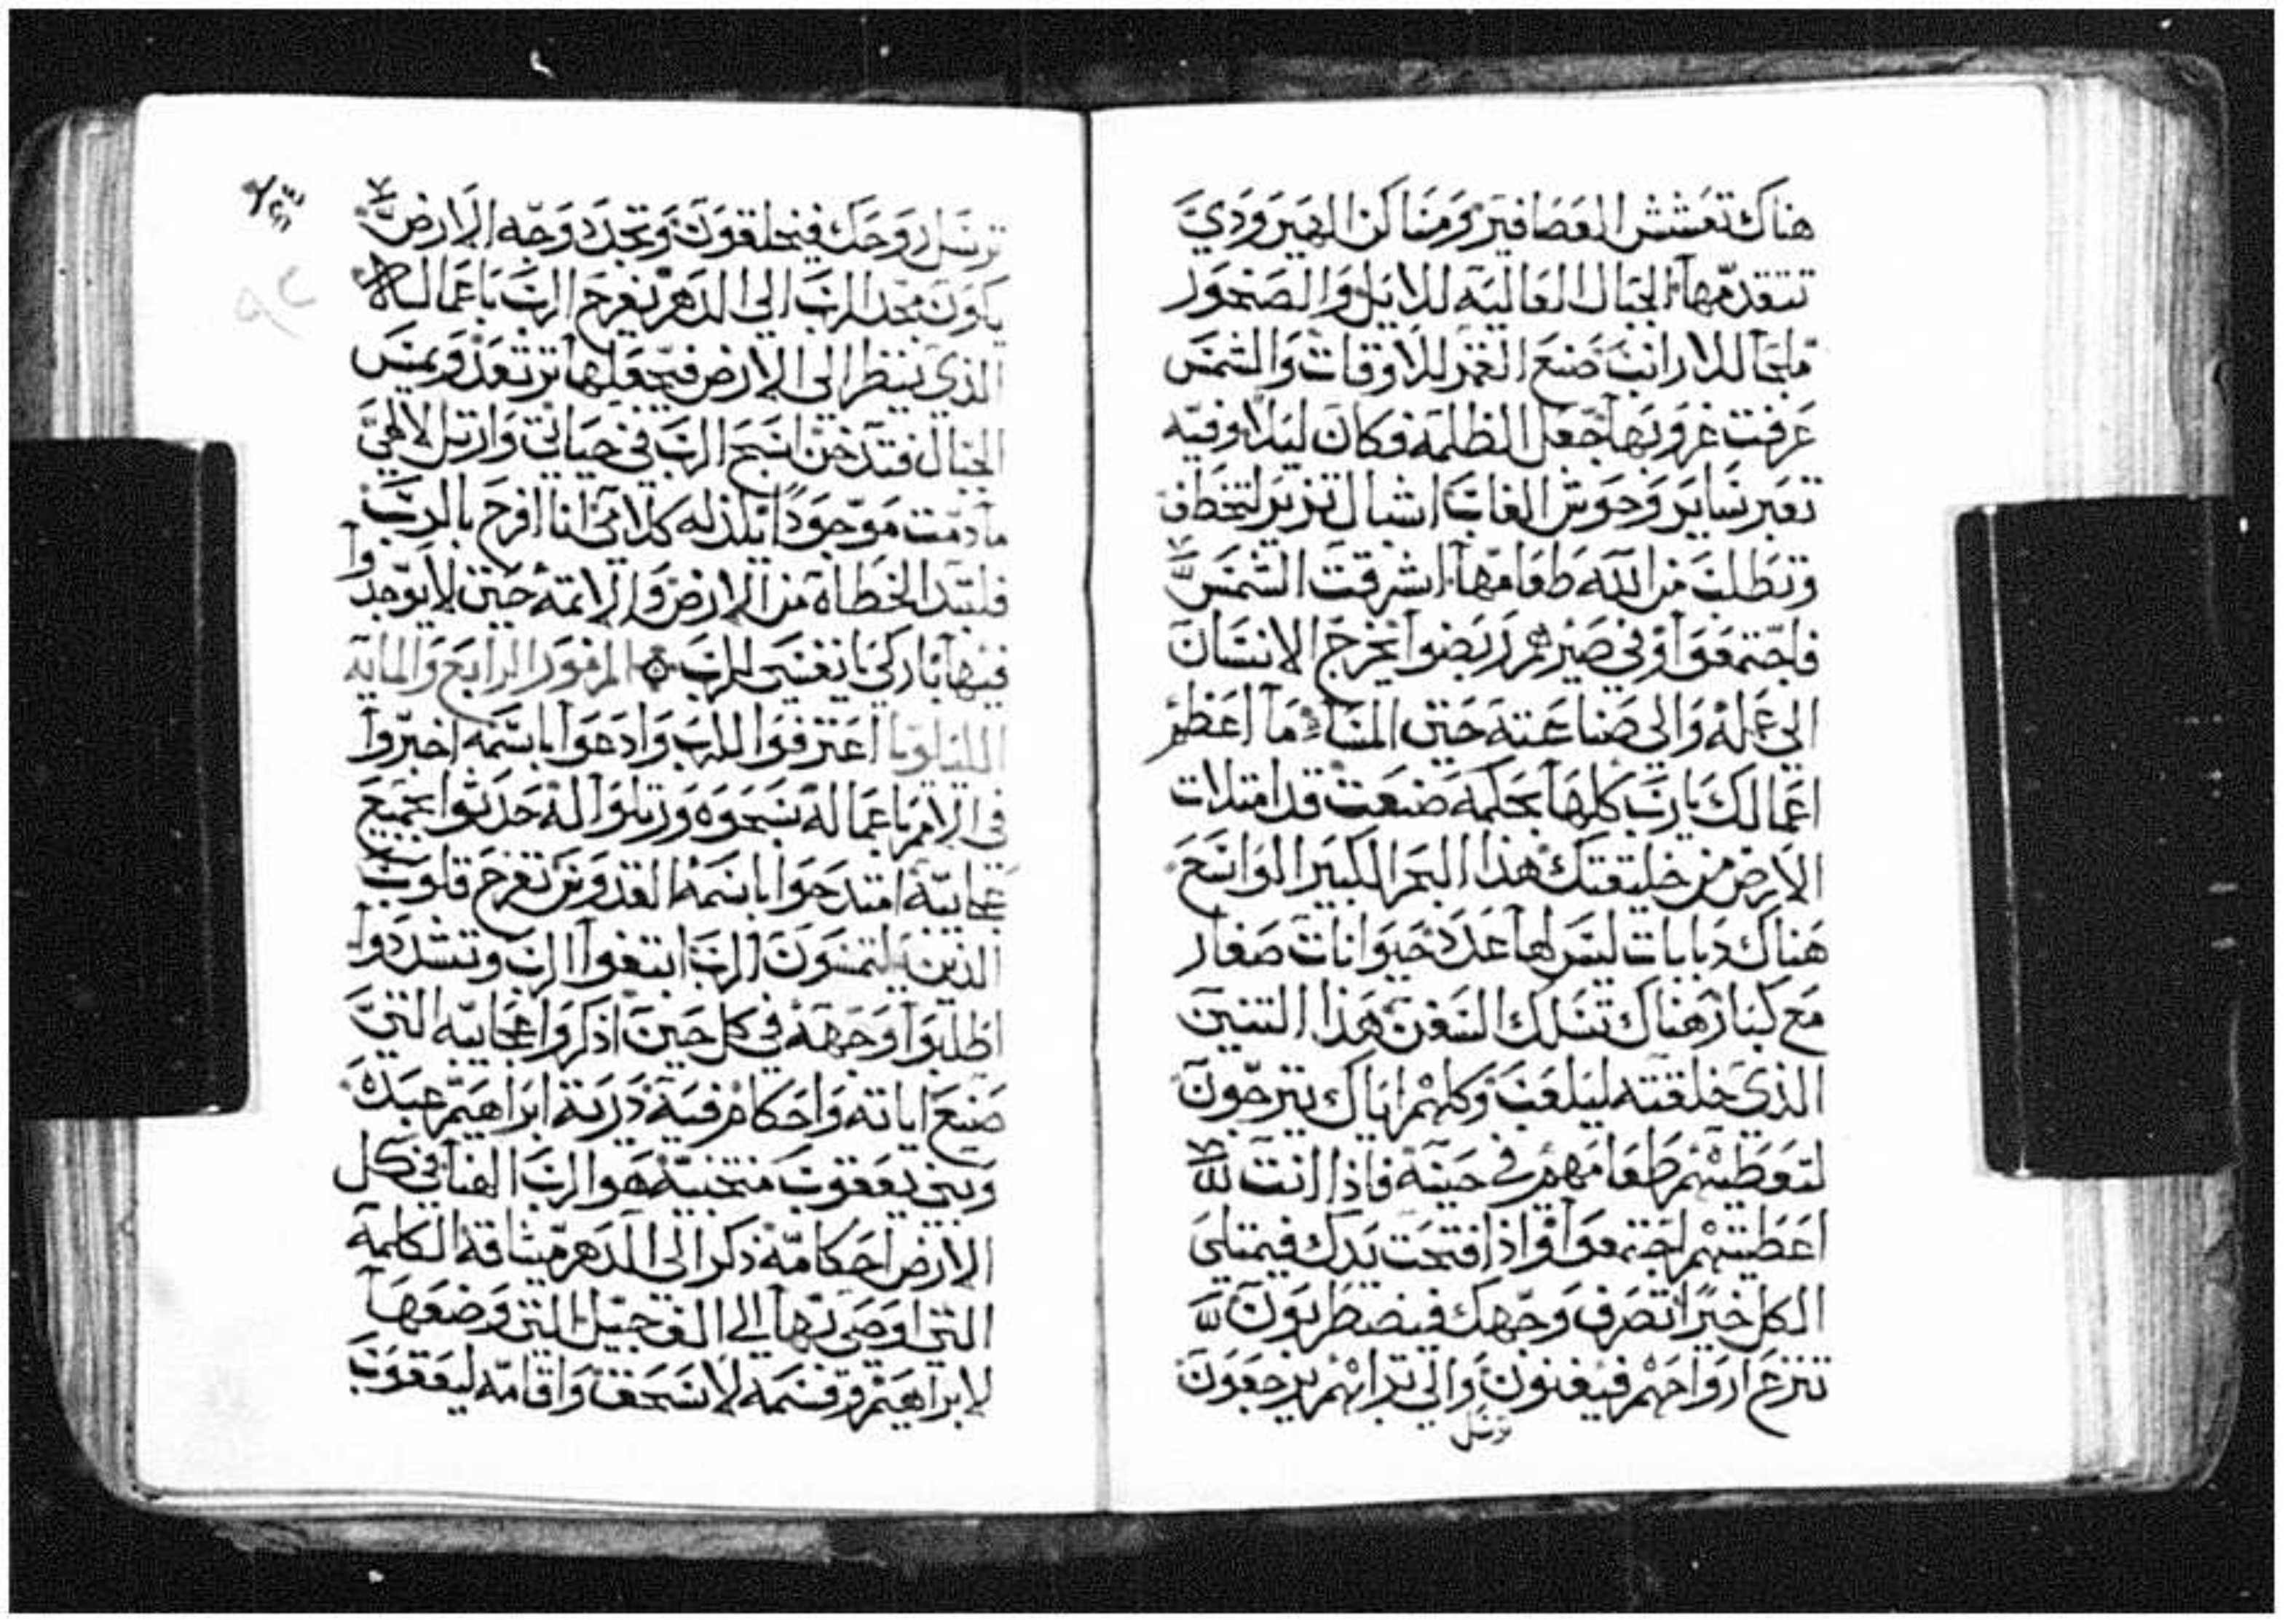 هناك تعشش العصافير ومساكن الهيرودي
تتقدمها الجبال العالية للايل والصخور
ملجا للارانب صنع القمر للاوقات والشمس
عرفت غروبها جعل الظلمة فكان ليلا وفيه
تعبر ساير وحوش الغاب اشبال تزير لتخطف
وتطلب من الله طعامها اشرقت الشمس
فاجتمعوا وفي صيرهم ربضوا يخرج الانسان
الى عمله والى صناعته حتى المساء ما اعظم
اعمالك يا رب كلها بحكمة صنعت قد امتلات
الارض من خليقتك هذا البحر الكبير الواسع
هناك دبابات ليس لها عدد حيوانات صغار
مع كبار هناك تسلك السفن هذا التنين
الذي خلقته ليلعب وكلهم اياك يترجون
لتعطيهم طعامهم في حينه فاذا انت
اعطيتهم اجتمعوا واذا فتحت يدك فيمتلي
الكل خيرا تصرف وجهك فيضطربون
تنزع ارواحهم فيفنون والى ترابهم يرجعون
ترسل
ترسل روحك فيخلقون وتجدد وجه الارض
يكون مجد الرب الى الدهر يفرح الرب باعماله
الذي ينظر الى الارض فيجعلها ترتعد ويمس
الجبال فتدخن اسبح الرب في حياتي وارتل لالهي
ما دمت موجودا يلذ له كلامي انا افرح بالرب
فلتبد الخطاه من الارض والاثمه حتى لا يوجدوا
فيها باركي يا نفسي الرب المزمور الرابع والمايه
الليلويا اعترفوا للرب وادعوا باسمه اخبروا
في الامم باعماله سبحوه ورتلوا له حدثوا بجميع
عجايبه امتدحوا باسمه القدوس تفرح قلوب
الذين يلتمسون الرب ابتغوا الرب وتشددوا
اطلبوا وجهه في كل حين اذكروا عجايبه التي
صنع اياته واحكام فيه ذرية ابراهيم عبده
وبني يعقوب منتخبيه هو الرب الهنا في كل
الارض احكامه ذكر الى الدهر ميثاقه الكلمة
التي اوصى بها الى الف جيل التي وضعها
لابراهيم وقسمه لاسحق واقامه ليعقوب